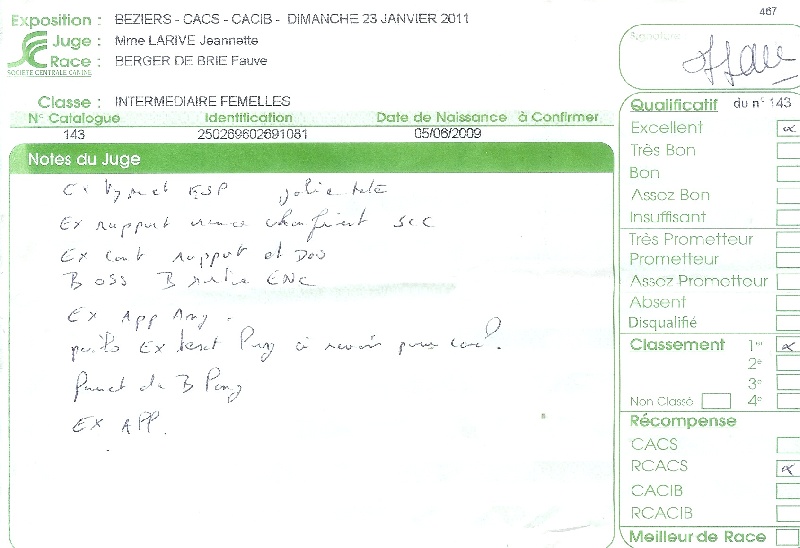 467
Exposition : BEZIERS - CACS - CACIB - DIMANCHE 23 JANVIER 2011
Juge : Mme LARIVE Jeannette
Race : BERGER DE BRIE Fauve
SOCIETE CENTRALE CANINE
Signature
Classe : INTERMEDIAIRE FEMELLES
N° Catalogue Identification Date de Naissance à Confirmer
143 250269602691081 05/06/2009
Notes du Juge
Ex type et ESP jolie tete
Ex rapport crane chanfrein sec
Ex rapport et Dos
B OSS B ENC
Ex App Ang.
Ex à revoir
B Poing
EX APP.
Qualificatif du n° 143
Excellent
Très Bon
Bon
Assez Bon
Insuffisant
Très Prometteur
Prometteur
Assez Prometteur
Absent
Disqualifié
Classement 1er
2e
3e
Non Classé 4e
Récompense
CACS
RCACS
CACIB
RCACIB
Meilleur de Race